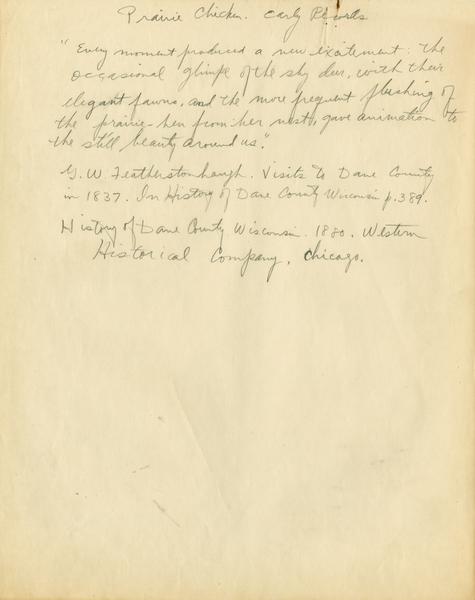 Prairie Chicken. Early Records
"Every moment produced a new excitement: The
occasional glimpse of the shy deer, with their
elegant fawns, and the more frequent flushing of
the prairie-hen from her nest, gave animation to
the still beauty around us."
G. W. Featherstonhaugh. Visits to Dane County
in 1837. In History of Dane County Wisconsin p. 389.
History of Dane County Wisconsin. 1880. Western
Historical Company, Chicago.